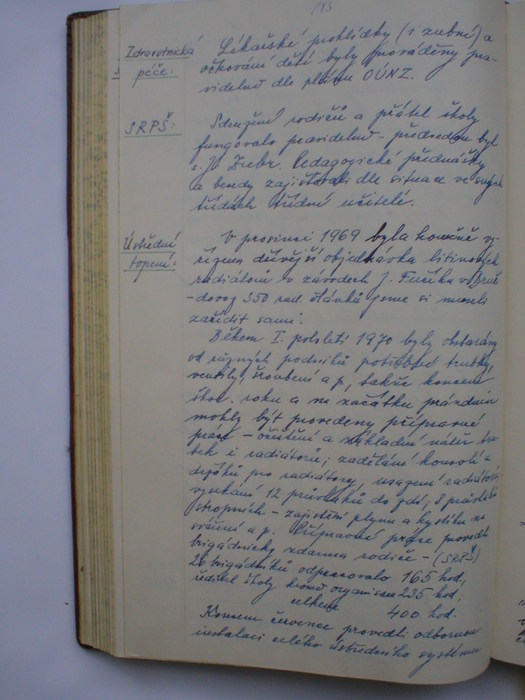 183
Zdravotnická
péče:
Lékařské prohlídky (i zubní) a
očkování dětí byly prováděny pra-
videlně dle plánu OÚNZ.
SRPŠ:
Sdružení rodičů a přátel školy
fungovalo pravidelně - předsedou byl
s. J. Pedagogické přednášky
a besedy zajišťovali dle situace ve svých
třídách třídní učitelé.
Ústřední
topení:
V prosinci 1969 byla konečně vy-
řízena dřívější objednávka litinových
radiátorů v závodech J. Fučíka v
- dovoz 350 rad. článků jsme si museli
zařídit sami.
Během I. pololetí 1970 byly obstarány
od různých podniků potřebné trubky,
ventily, šroubení a p., takže koncem
škol. roku a na začátku prázdnin
mohly být provedeny přípravné
práce - očištění a základní nátěr tru-
bek i radiátorů, zadělání konsol a
držáků pro radiátory, usazení radiátorů
vysekání 12 průrazů do zdí, 8
stropních - zajištění plynu a kyslíku na
sváření a p. Přípravné práce provedli
brigádnicky zdarma rodiče - (SRPŠ)
26 brigádníků odpracovalo 165 hod,
ředitel školy kromě organisace 235 hod,
celkem 400 hod.
Koncem července provedli odbornou
instalaci celého ústředního systému